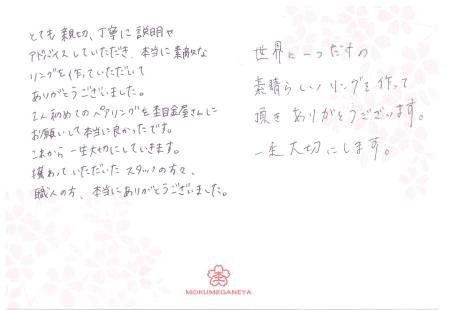 とても親切、丁寧に説明や
アドバイスしていただき、本当に素敵な
リングを作っていただいて
ありがとうございました。
2人初めてのペアリングを杢目金屋さんに
お願いして本当に良かったです。
これから一生大切にしていきます。
携わっていただいたスタッフの方々、
職人の方、本当にありがとうございました。
世界に一つだけの
素晴らしいリングを作って
頂きありがとうございます。
一生大切にします。
MOKUMEGANEYA